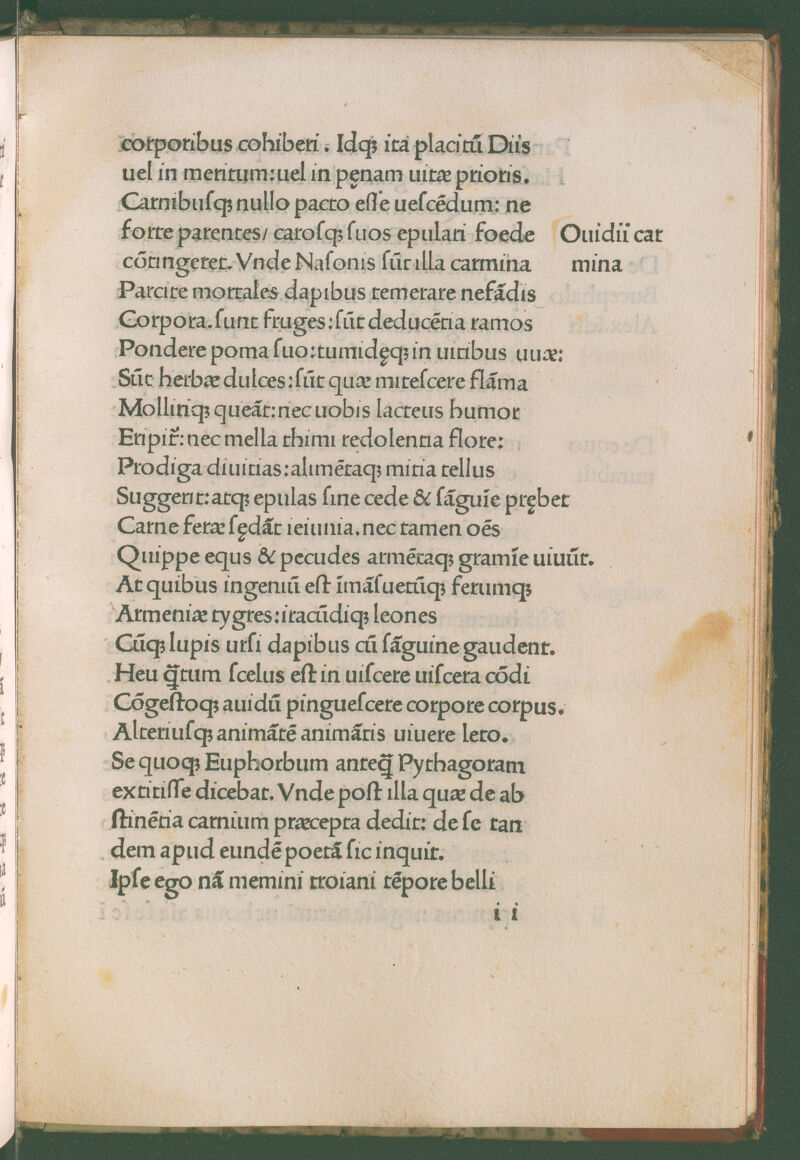 corporibus cohiberi. Idqꝫ ita placitū Diis
uel in meritum: uel in pęnam uitæ prioris.
Carnibuſqꝫ nullo pacto eſſe ueſcēdum: ne
forte parentes/ caroſqꝫ ſuos epulari foede
Ouidii car
cōtingeret. Vnde Naſonis ſūt illa carmina
mina
Parcite mortales dapibus temerare nefādis
Corpora. ſunt fruges: ſūt deducētia ramos
Pondere poma ſuo: tumidęqꝫ in uitibus uuæ:
Sūt herbæ dulces: ſūt quæ miteſcere flāma
Molliriqꝫ queāt: nec uobis lacteus humor
Eripit᷑: nec mella thimi redolentia flore:
Prodiga diuitias: alimētaqꝫ mitia tellus
Suggerit: atqꝫ epulas ſine cede & ſāguīe prębet
Carne feræ ſędāt ieiunia. nec tamen oēs
Quippe equs & pecudes armētaqꝫ gramīe uiuūt.
At quibus ingeniū eſt īmāſuetūqꝫ ferumqꝫ
Armeniæ tygres: iracūdiqꝫ leones
Cūqꝫ lupis urſi dapibus cū ſāguine gaudent.
Heu q̄tum ſcelus eſt in uiſcere uiſcera cōdi
Cōgeſtoqꝫ auidū pingueſcere corpore corpus.
Alteriuſqꝫ animātē animātis uiuere leto.
Se quoqꝫ Euphorbum anteq̄ Pythagoram
extitiſſe dicebat. Vnde poſt illa quæ de ab
ſtinētia carnium præcepta dedit: de ſe tan
dem apud eundē poetā ſic inquit.
Ipſe ego nā memini troiani tēpore belli
i i